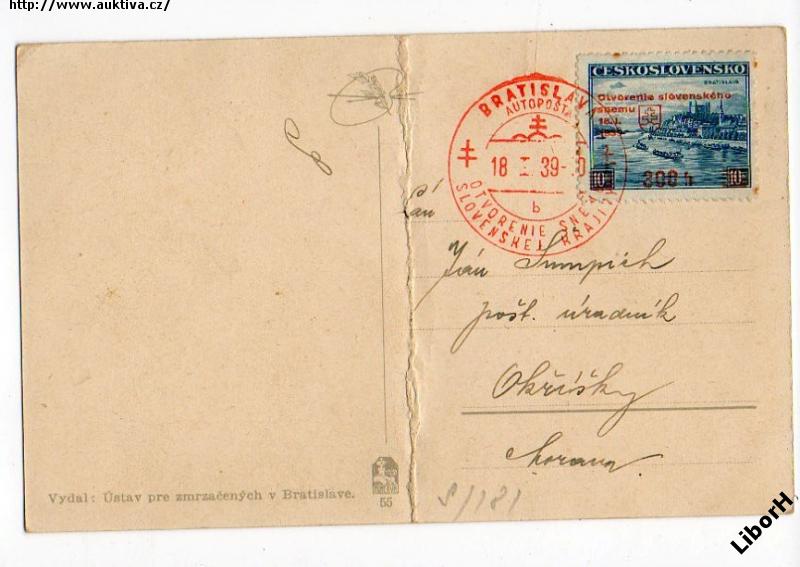 http://www.auktiva.cz/
ČESKOSLOVENSKO
BRATISLAVA
Otvorenie slovenského
snemu
18.I.
300 h
10 10
BRATISLAVA
AUTOPOŠTA
18 I 39
b
OTVORENIE SNEMU
SLOVENSKEJ KRAJINY
Pán
Ján Sumpich
pošt. úradník
Okříšky
Morava
Vydal: Ústav pre zmrzačených v Bratislave.
55
S/181
LiborH